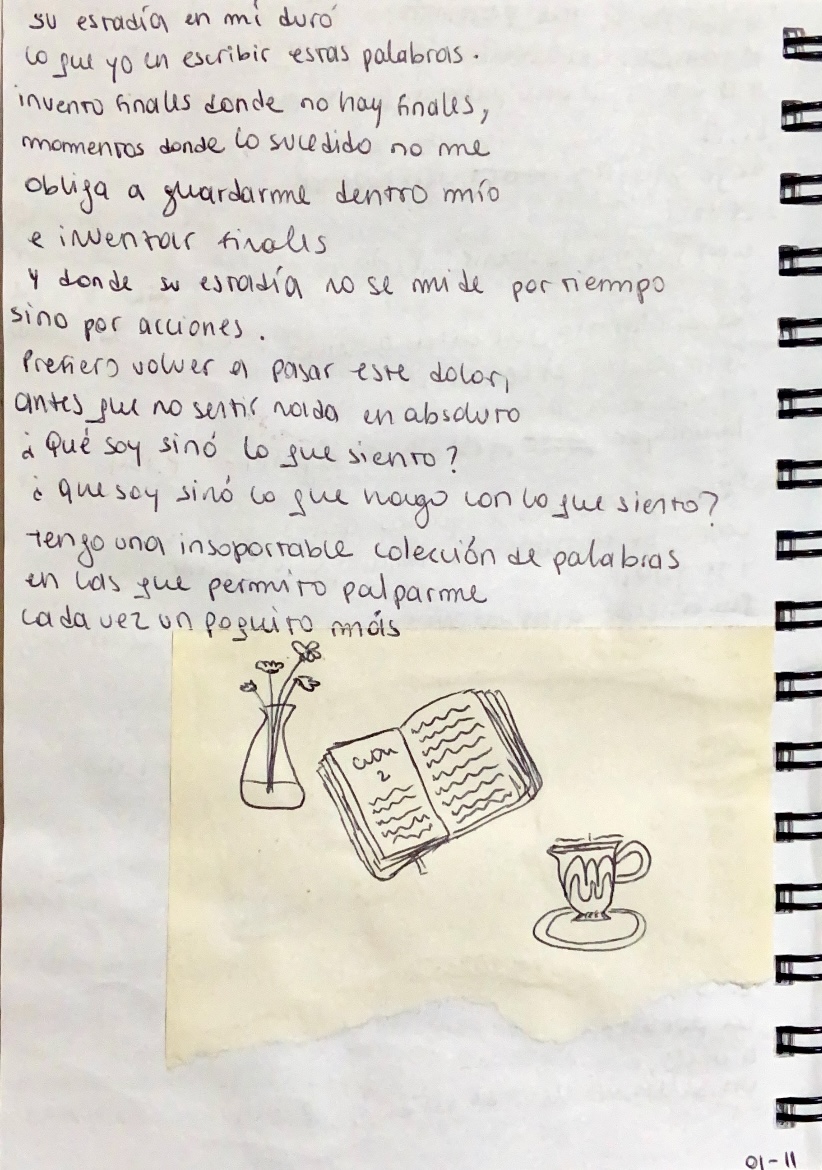 su estadía en mí duró
lo que yo en escribir estas palabras.
invento finales donde no hay finales,
momentos donde lo sucedido no me
obliga a guardarme dentro mío
e inventar finales
y donde su estadía no se mide por tiempo
sino por acciones.
Prefiero volver a pasar este dolor,
antes que no sentir nada en absoluto
¿Qué soy sinó lo que siento?
¿que soy sinó lo que hago con lo que siento?
tengo una insoportable colección de palabras
en las que permito palparme
cada vez un poquito más
2
01-11